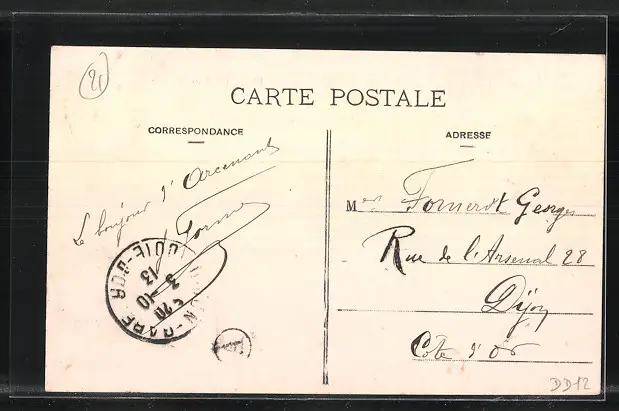 21
CARTE POSTALE
CORRESPONDANCE
ADRESSE
Le bonjour d'Arcenant
M Fornerot Georges
Rue de l'Arsenal 28
Dijon
Côte d'Or
GARE
COTE-D'OR
3-10
13
A
DD12